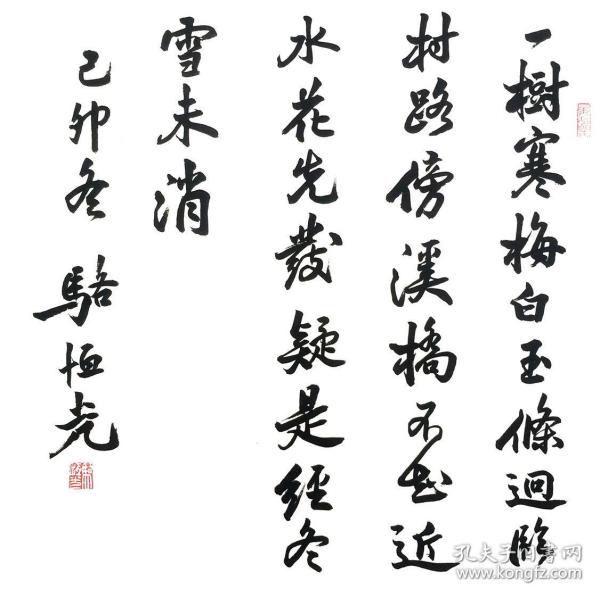 一樹寒梅白玉條迥臨
村路傍溪橋不知近
水花先發疑是經冬
雪未消
己卯冬 駱恒光
孔夫子旧书网
www.kongfz.com